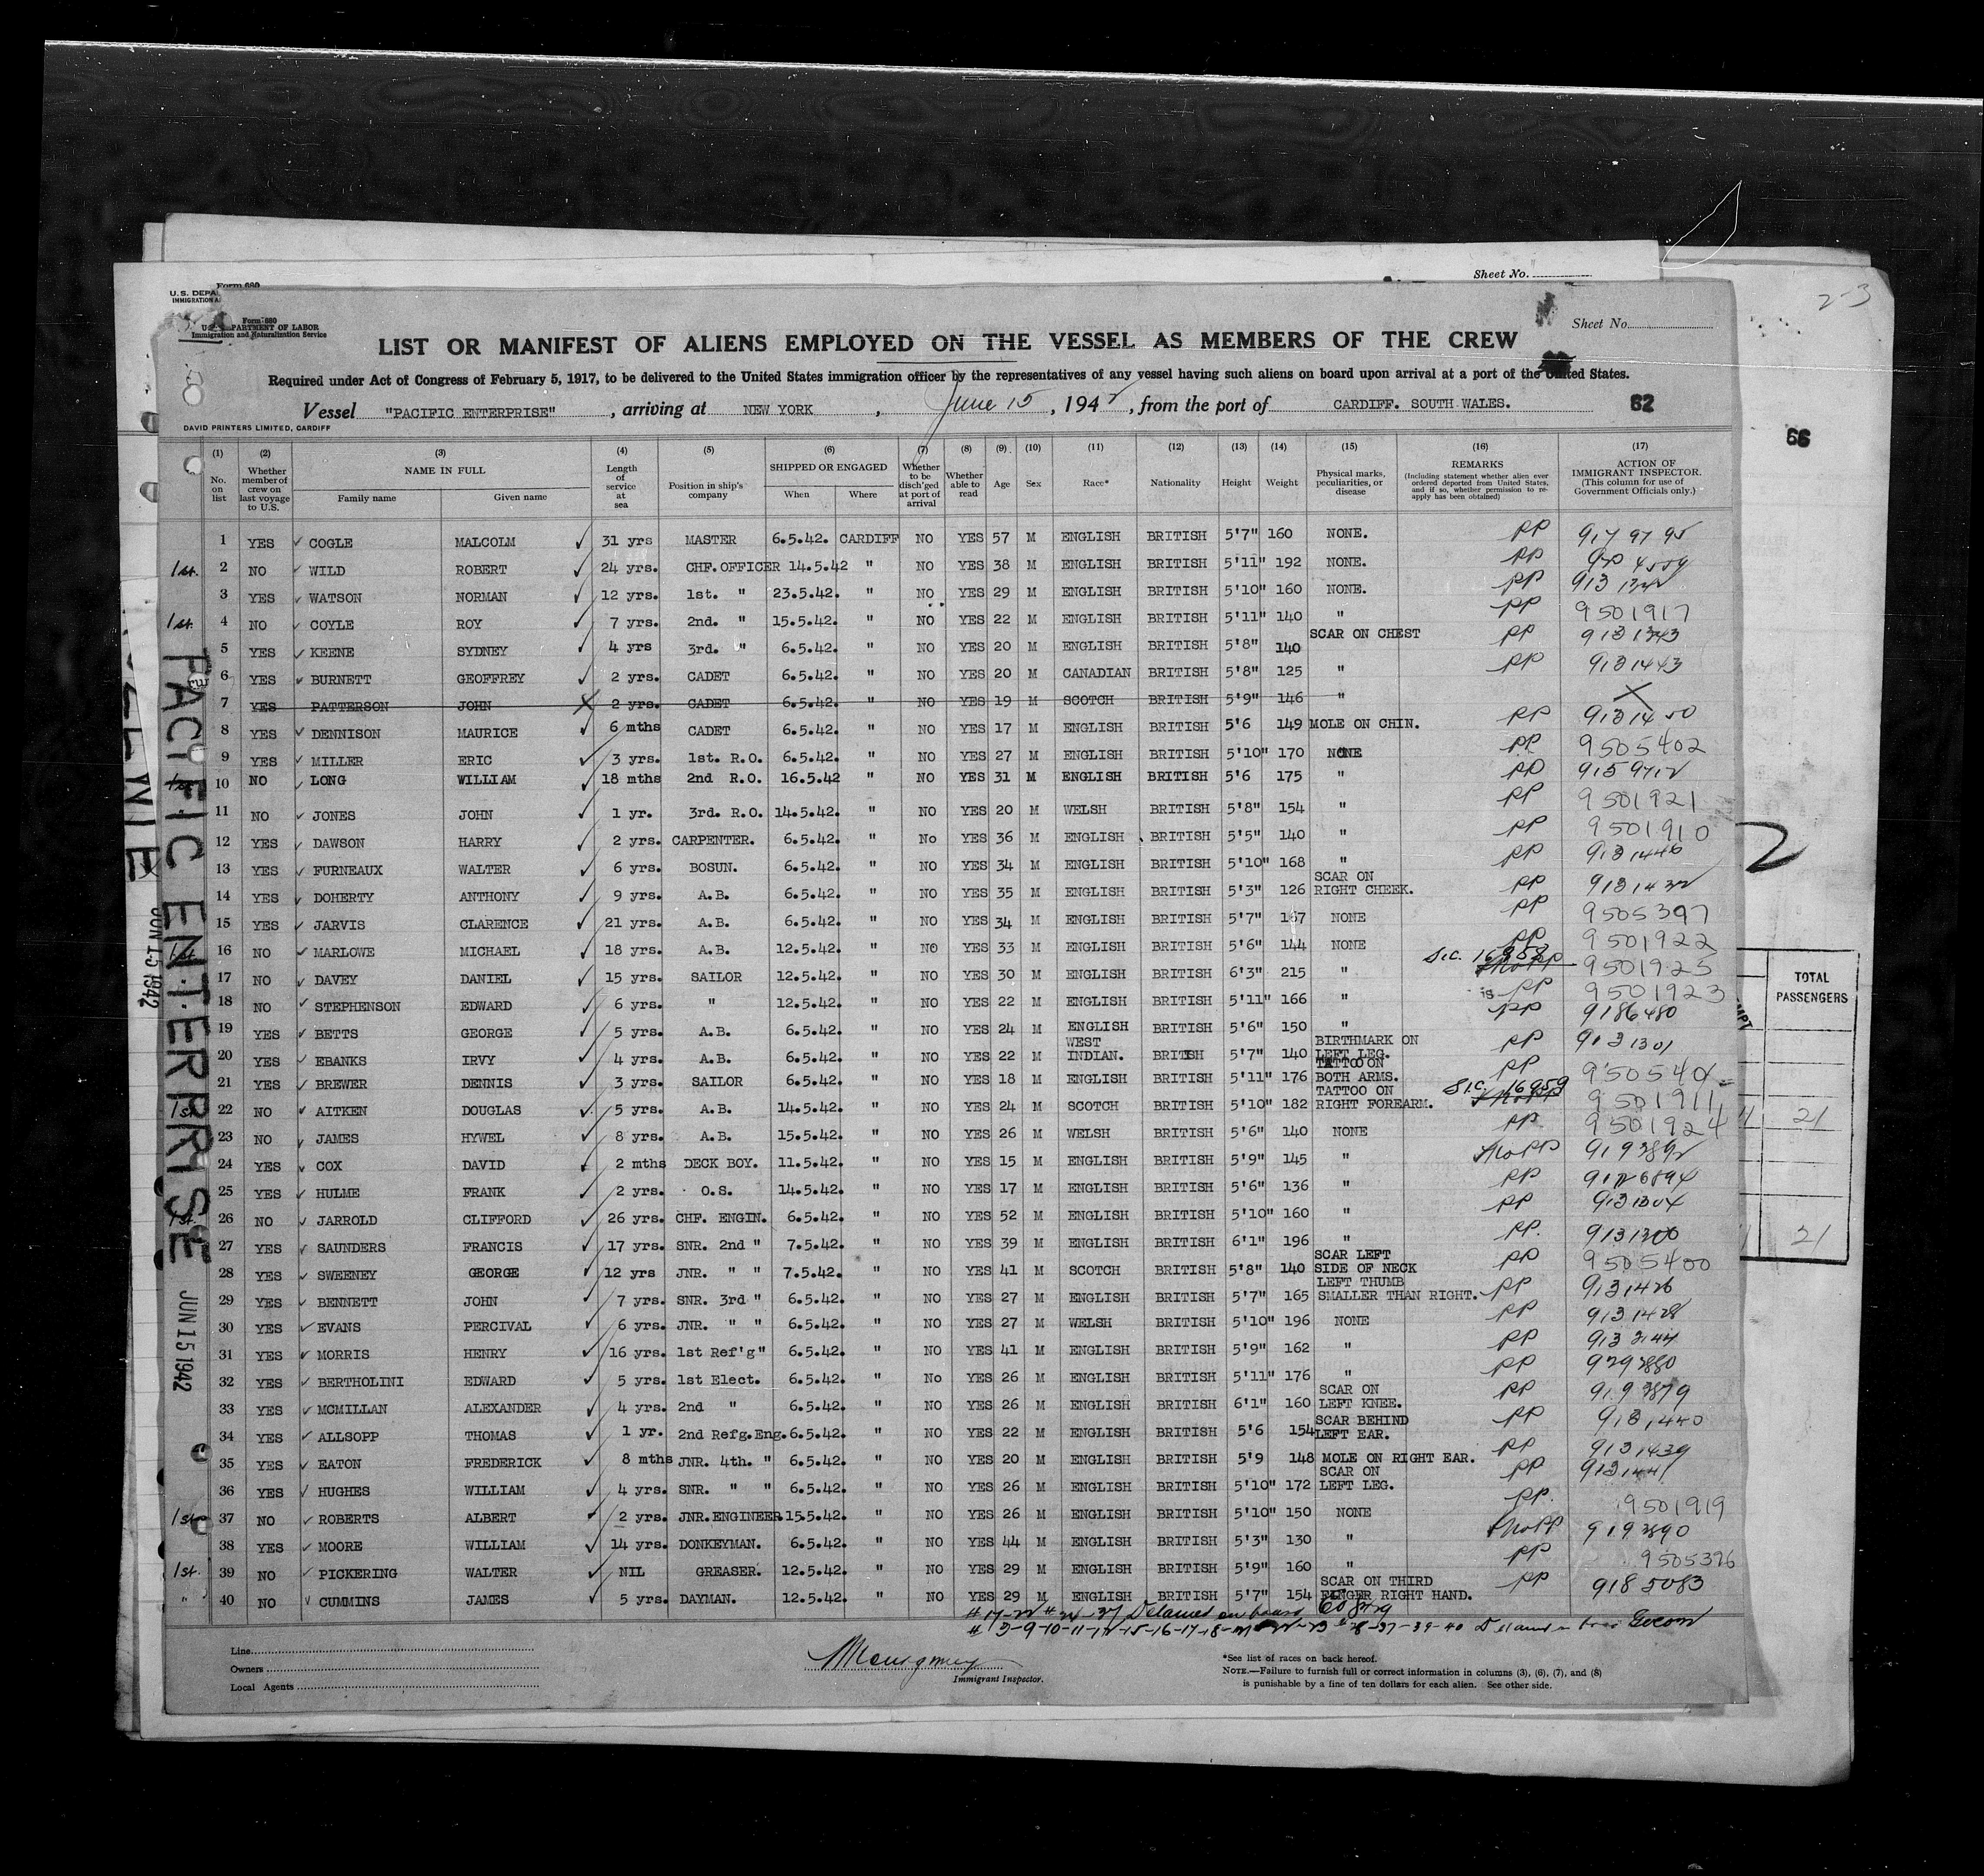 Sheet No.
2-3
Form 680
U.S. DEPA
IMMIGRATION A
Form 680
U.S. DEPARTMENT OF LABOR
Immigration and Naturalization Service
Sheet No.
LIST OR MANIFEST OF ALIENS EMPLOYED ON THE VESSEL AS MEMBERS OF THE CREW
Required under Act of Congress of February 5, 1917, to be delivered to the United States immigration officer by the representatives of any vessel having such aliens on board upon arrival at a port of the United States.
Vessel "PACIFIC ENTERPRISE", arriving at NEW YORK, June 15, 1942, from the port of CARDIFF. SOUTH WALES. 62
DAVID PRINTERS LIMITED, CARDIFF
66
(1) (2) (3) (4) (5) (6) (7) (8) (9) (10) (11) (12) (13) (14) (15) (16) (17)
No. on list
Whether member of crew on last voyage to U.S.
NAME IN FULL
Family name Given name
Length of service at sea
Position in ship's company
SHIPPED OR ENGAGED
When Where
Whether to be disch'ged at port of arrival
Whether able to read
Age Sex Race* Nationality Height Weight
Physical marks, peculiarities, or disease
REMARKS
(Including statement whether alien ever ordered deported from United States, and if so, whether permission to re-apply has been obtained)
ACTION OF IMMIGRANT INSPECTOR.
(This column for use of Government Officials only.)
1 YES COGLE MALCOLM 31 yrs MASTER 6.5.42. CARDIFF NO YES 57 M ENGLISH BRITISH 5'7" 160 NONE. PP 9179795
1st. 2 NO WILD ROBERT 24 yrs. CHF.OFFICER 14.5.42 " NO YES 38 M ENGLISH BRITISH 5'11" 192 NONE. PP
3 YES WATSON NORMAN 12 yrs. 1st. " 23.5.42. " NO YES 29 M ENGLISH BRITISH 5'10" 160 NONE. PP
1st. 4 NO COYLE ROY 7 yrs. 2nd. " 15.5.42. " NO YES 22 M ENGLISH BRITISH 5'11" 140 " PP 9501917
5 YES KEENE SYDNEY 4 yrs 3rd. " 6.5.42. " NO YES 20 M ENGLISH BRITISH 5'8" 140 SCAR ON CHEST PP 9131343
6 YES BURNETT GEOFFREY 2 yrs. CADET 6.5.42. " NO YES 20 M CANADIAN BRITISH 5'8" 125 " PP 9131443
7 YES PATTERSON JOHN X 2 yrs. CADET 6.5.42. " NO YES 19 M SCOTCH BRITISH 5'9" 146 " X
8 YES DENNISON MAURICE 6 mths CADET 6.5.42. " NO YES 17 M ENGLISH BRITISH 5'6 149 MOLE ON CHIN. PP 9131450
9 YES MILLER ERIC 3 yrs. 1st. R.O. 6.5.42. " NO YES 27 M ENGLISH BRITISH 5'10" 170 NONE PP 9505402
1st 10 NO LONG WILLIAM 18 mths 2nd R.O. 16.5.42 " NO YES 31 M ENGLISH BRITISH 5'6 175 " PP
11 NO JONES JOHN 1 yr. 3rd. R.O. 14.5.42. " NO YES 20 M WELSH BRITISH 5'8" 154 " PP 9501921
12 YES DAWSON HARRY 2 yrs. CARPENTER. 6.5.42. " No YES 36 M ENGLISH BRITISH 5'5" 140 " PP 9501910
13 YES FURNEAUX WALTER 6 yrs. BOSUN. 6.5.42. " NO YES 34 M ENGLISH BRITISH 5'10" 168 " PP 9131446
14 YES DOHERTY ANTHONY 9 yrs. A.B. 6.5.42. " NO YES 35 M ENGLISH BRITISH 5'3" 126 SCAR ON RIGHT CHEEK. PP
15 YES JARVIS CLARENCE 21 yrs. A.B. 6.5.42. " NO YES 34 M ENGLISH BRITISH 5'7" 167 NONE PP 9505397
1st 16 NO MARLOWE MICHAEL 18 yrs. A.B. 12.5.42. " NO YES 33 M ENGLISH BRITISH 5'6" 144 NONE PP 9501922
17 NO DAVEY DANIEL 15 yrs. SAILOR 12.5.42. " NO YES 30 M ENGLISH BRITISH 6'3" 215 " S.C. No PP 9501925
18 NO STEPHENSON EDWARD 6 yrs. " 12.5.42. " NO YES 22 M ENGLISH BRITISH 5'11" 166 " is PP 9501923
19 YES BETTS GEORGE 5 yrs. A.B. 6.5.42. " NO YES 24 M ENGLISH BRITISH 5'6" 150 " PP 9186480
20 YES EBANKS IRVY 4 yrs. A.B. 6.5.42. " NO YES 22 M WEST INDIAN. BRITISH 5'7" 140 BIRTHMARK ON LEFT LEG. PP 9131301
21 YES BREWER DENNIS 3 yrs. SAILOR 6.5.42. " NO YES 18 M ENGLISH BRITISH 5'11" 176 TATTOO ON BOTH ARMS. PP
1st 22 NO AITKEN DOUGLAS 5 yrs. A.B. 14.5.42. " NO YES 24 M SCOTCH BRITISH 5'10" 182 TATTOO ON RIGHT FOREARM. S.C. 16959 No PP 9501911
23 NO JAMES HYWEL 8 yrs. A.B. 15.5.42. " NO YES 26 M WELSH BRITISH 5'6" 140 NONE PP 9501924
24 YES COX DAVID 2 mths DECK BOY. 11.5.42. " NO YES 15 M ENGLISH BRITISH 5'9" 145 " No PP
25 YES HULME FRANK 2 yrs. O.S. 14.5.42. " NO YES 17 M ENGLISH BRITISH 5'6" 136 " PP
1st. 26 NO JARROLD CLIFFORD 26 yrs. CHF. ENGIN. 6.5.42. " NO YES 52 M ENGLISH BRITISH 5'10" 160 " PP 9131304
27 YES SAUNDERS FRANCIS 17 yrs. SNR. 2nd " 7.5.42. " NO YES 39 M ENGLISH BRITISH 6'1" 196 " PP. 9131300
28 YES SWEENEY GEORGE 12 yrs JNR. " " 7.5.42. " NO YES 41 M SCOTCH BRITISH 5'8" 140 SCAR LEFT SIDE OF NECK PP 9505400
29 YES BENNETT JOHN 7 yrs. SNR. 3rd " 6.5.42. " NO YES 27 M ENGLISH BRITISH 5'7" 165 LEFT THUMB SMALLER THAN RIGHT. PP 9131426
30 YES EVANS PERCIVAL 6 yrs. JNR. " " 6.5.42. " NO YES 27 M WELSH BRITISH 5'10" 196 NONE PP 9131428
31 YES MORRIS HENRY 16 yrs. 1st Ref'g" 6.5.42. " NO YES 41 M ENGLISH BRITISH 5'9" 162 " PP
32 YES BERTHOLINI EDWARD 5 yrs. 1st Elect. 6.5.42. " No YES 26 M ENGLISH BRITISH 5'11" 176 " PP
33 YES MCMILLAN ALEXANDER 4 yrs. 2nd " 6.5.42. " NO YES 26 M ENGLISH BRITISH 6'1" 160 SCAR ON LEFT KNEE. PP
34 YES ALLSOPP THOMAS 1 yr. 2nd Refg.Eng. 6.5.42. " NO YES 22 M ENGLISH BRITISH 5'6 154 SCAR BEHIND LEFT EAR. PP 9131440
35 YES EATON FREDERICK 8 mths JNR. 4th. " 6.5.42. " NO YES 20 M ENGLISH BRITISH 5'9 148 MOLE ON RIGHT EAR. PP 9131439
36 YES HUGHES WILLIAM 4 yrs. SNR. " " 6.5.42. " NO YES 26 M ENGLISH BRITISH 5'10" 172 SCAR ON LEFT LEG. PP 9131441
1st 37 NO ROBERTS ALBERT 2 yrs. JNR.ENGINEER. 15.5.42. " NO YES 26 M ENGLISH BRITISH 5'10" 150 NONE PP. 9501919
38 YES MOORE WILLIAM 14 yrs. DONKEYMAN. 6.5.42. " NO YES 44 M ENGLISH BRITISH 5'3" 130 " No PP
1st. 39 NO PICKERING WALTER NIL GREASER. 12.5.42. " NO YES 29 M ENGLISH BRITISH 5'9" 160 " PP 9505396
" 40 NO CUMMINS JAMES 5 yrs. DAYMAN. 12.5.42. " NO YES 29 M ENGLISH BRITISH 5'7" 154 SCAR ON THIRD FINGER RIGHT HAND. PP 9185083
Detained on board
Line
Owners
Local Agents
Immigrant Inspector.
*See list of races on back hereof.
NOTE.—Failure to furnish full or correct information in columns (3), (6), (7), and (8)
is punishable by a fine of ten dollars for each alien. See other side.
PACIFIC ENTERPRISE
JUN 15 1942
JUN 15 1942
2
TOTAL PASSENGERS
21
21